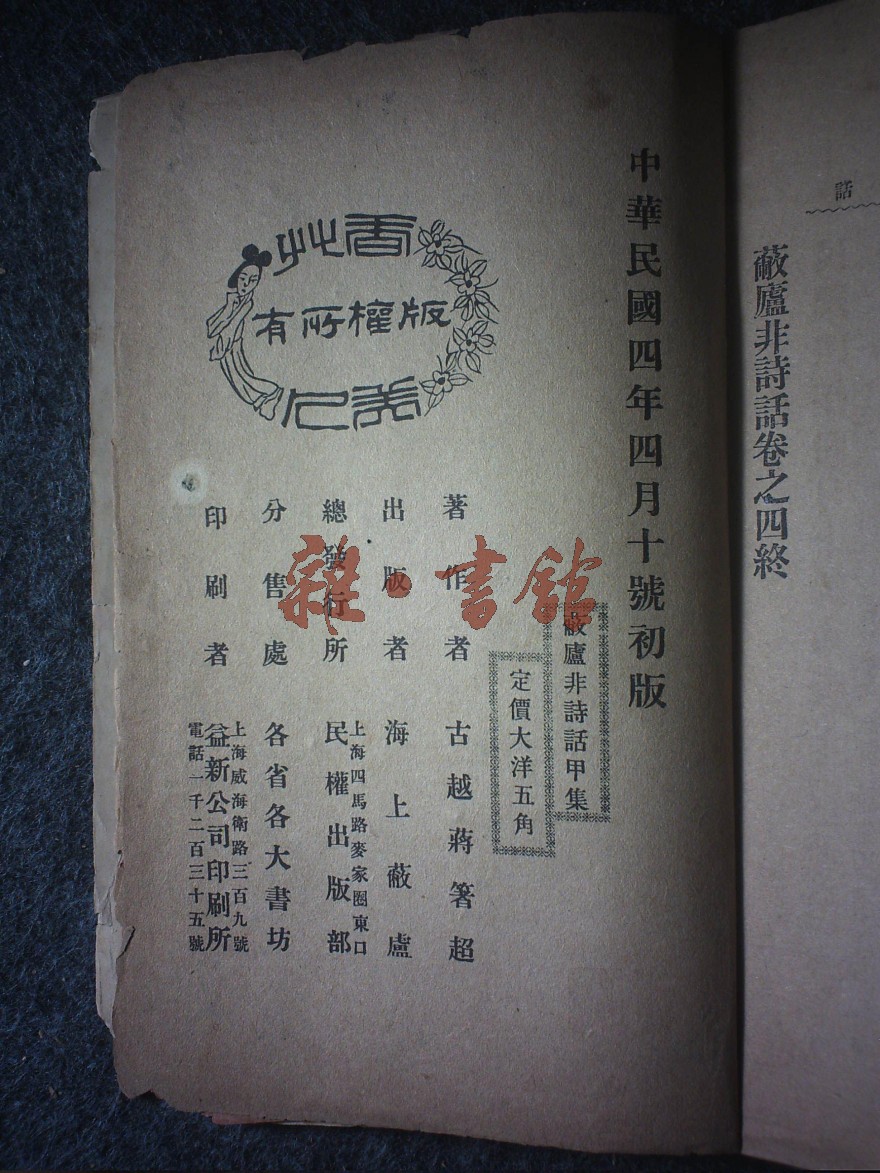 話
蔽廬非詩話卷之四終
中華民國四年四月十號初版
蔽廬非詩話甲集
定價大洋五角
著作者 古越蔣箸超
出版者 海上蔽廬
總發行所 上海四馬路麥家圈東口 民權出版部
分售處 各省各大書坊
印刷者 上海威海衛路三百九號 益新公司印刷所 電話一千二百三十五號
香艸
版權所有
美人
雜·書館